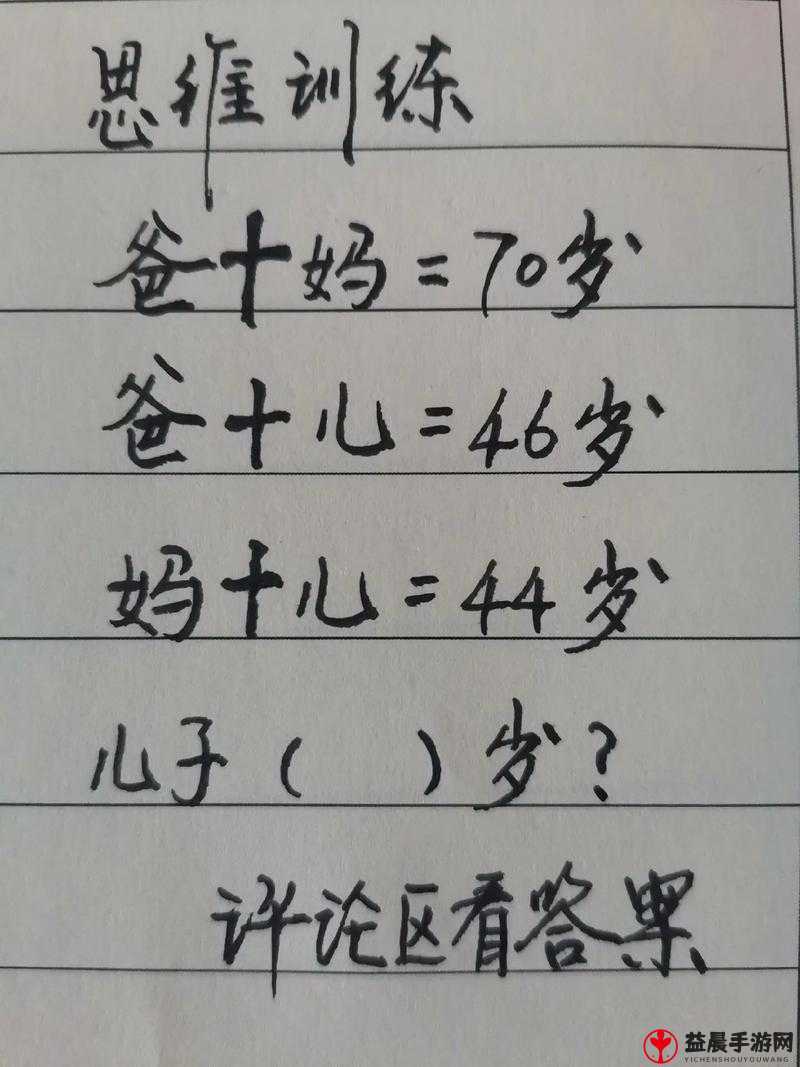 思维训练
爸+妈=70岁
爸+儿=46岁
妈+儿=44岁
儿子( )岁?
评论区看答案
益晨手游网
YICHENSHOUYOUWANG